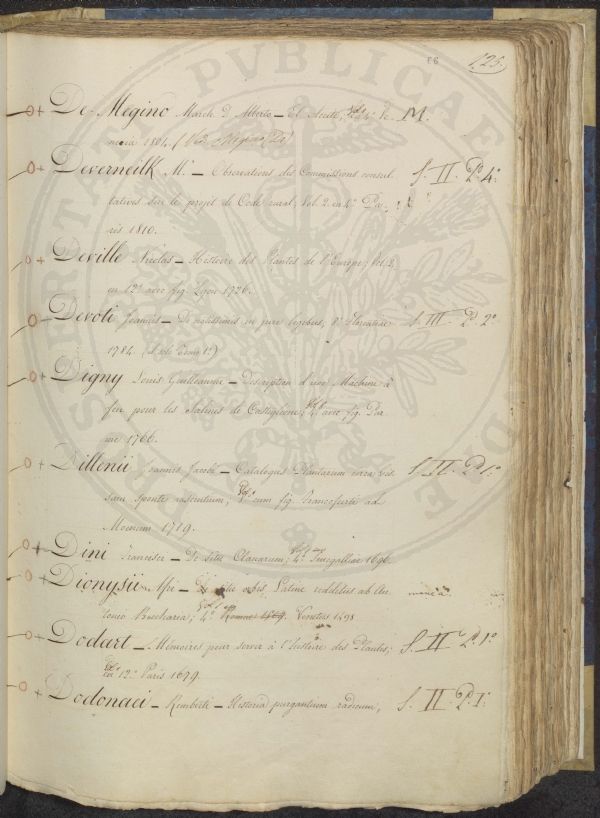 86
125.
De-Megino March. D. Alberto — El 4°. Ve- M.
nezia 1804. (V. Megino De)
Deverneilh Mr. — Observations des Commissions consul- S. II P. 4°
tatives sur le projet de Code rural, Vol. 2. en 4° Pa-
ris 1810.
Deville Nicolas — Histoire des Plantes de l'Europe, Vol. 2.
en 12° avec fig. Lyon 1726.
Devoti Joannis — De notissimis in jure legibus, 8° Florentiae S. III. P. 2°
1784. (il solo Tomo 1°)
Digny Louis Guillaumme — Description d'une Machine à
feu pour les Salines de Castiglione, 4° avec fig. Par-
me 1766.
Dillenii Joannis Jacobi — Catalogus Plantarum circa Gis- S. II. P. 1°
sam sponte nascentium, 8° cum fig. Francofurti ad
Moenum 1719.
Dini Francisci — De situ Clanarum, 4° Senogalliae 1696.
Dionysii Afri — De situ orbis, Latine redditus ab An- manca
tonio Beccharia, 4° Romae Venetiis 1498
Dodart — Mémoires pour servir à l'histoire des Plantes, S. II P. 1°
en 12° Paris 1679.
Dodonaei — Remberti — Historia purgantium radicum, S. II P. 1°
PUBLICAE